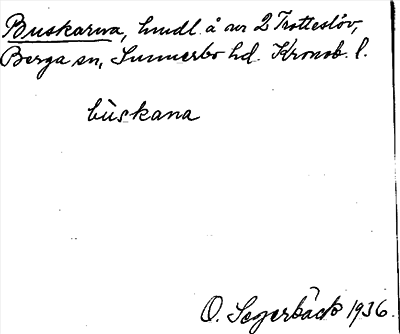 Buskarna, hmdl. å nr 2 Trotteslöv,
Berga sn, Sunnerbo hd. Kronob. l.
bùskana
O. Segerbäck 1936.